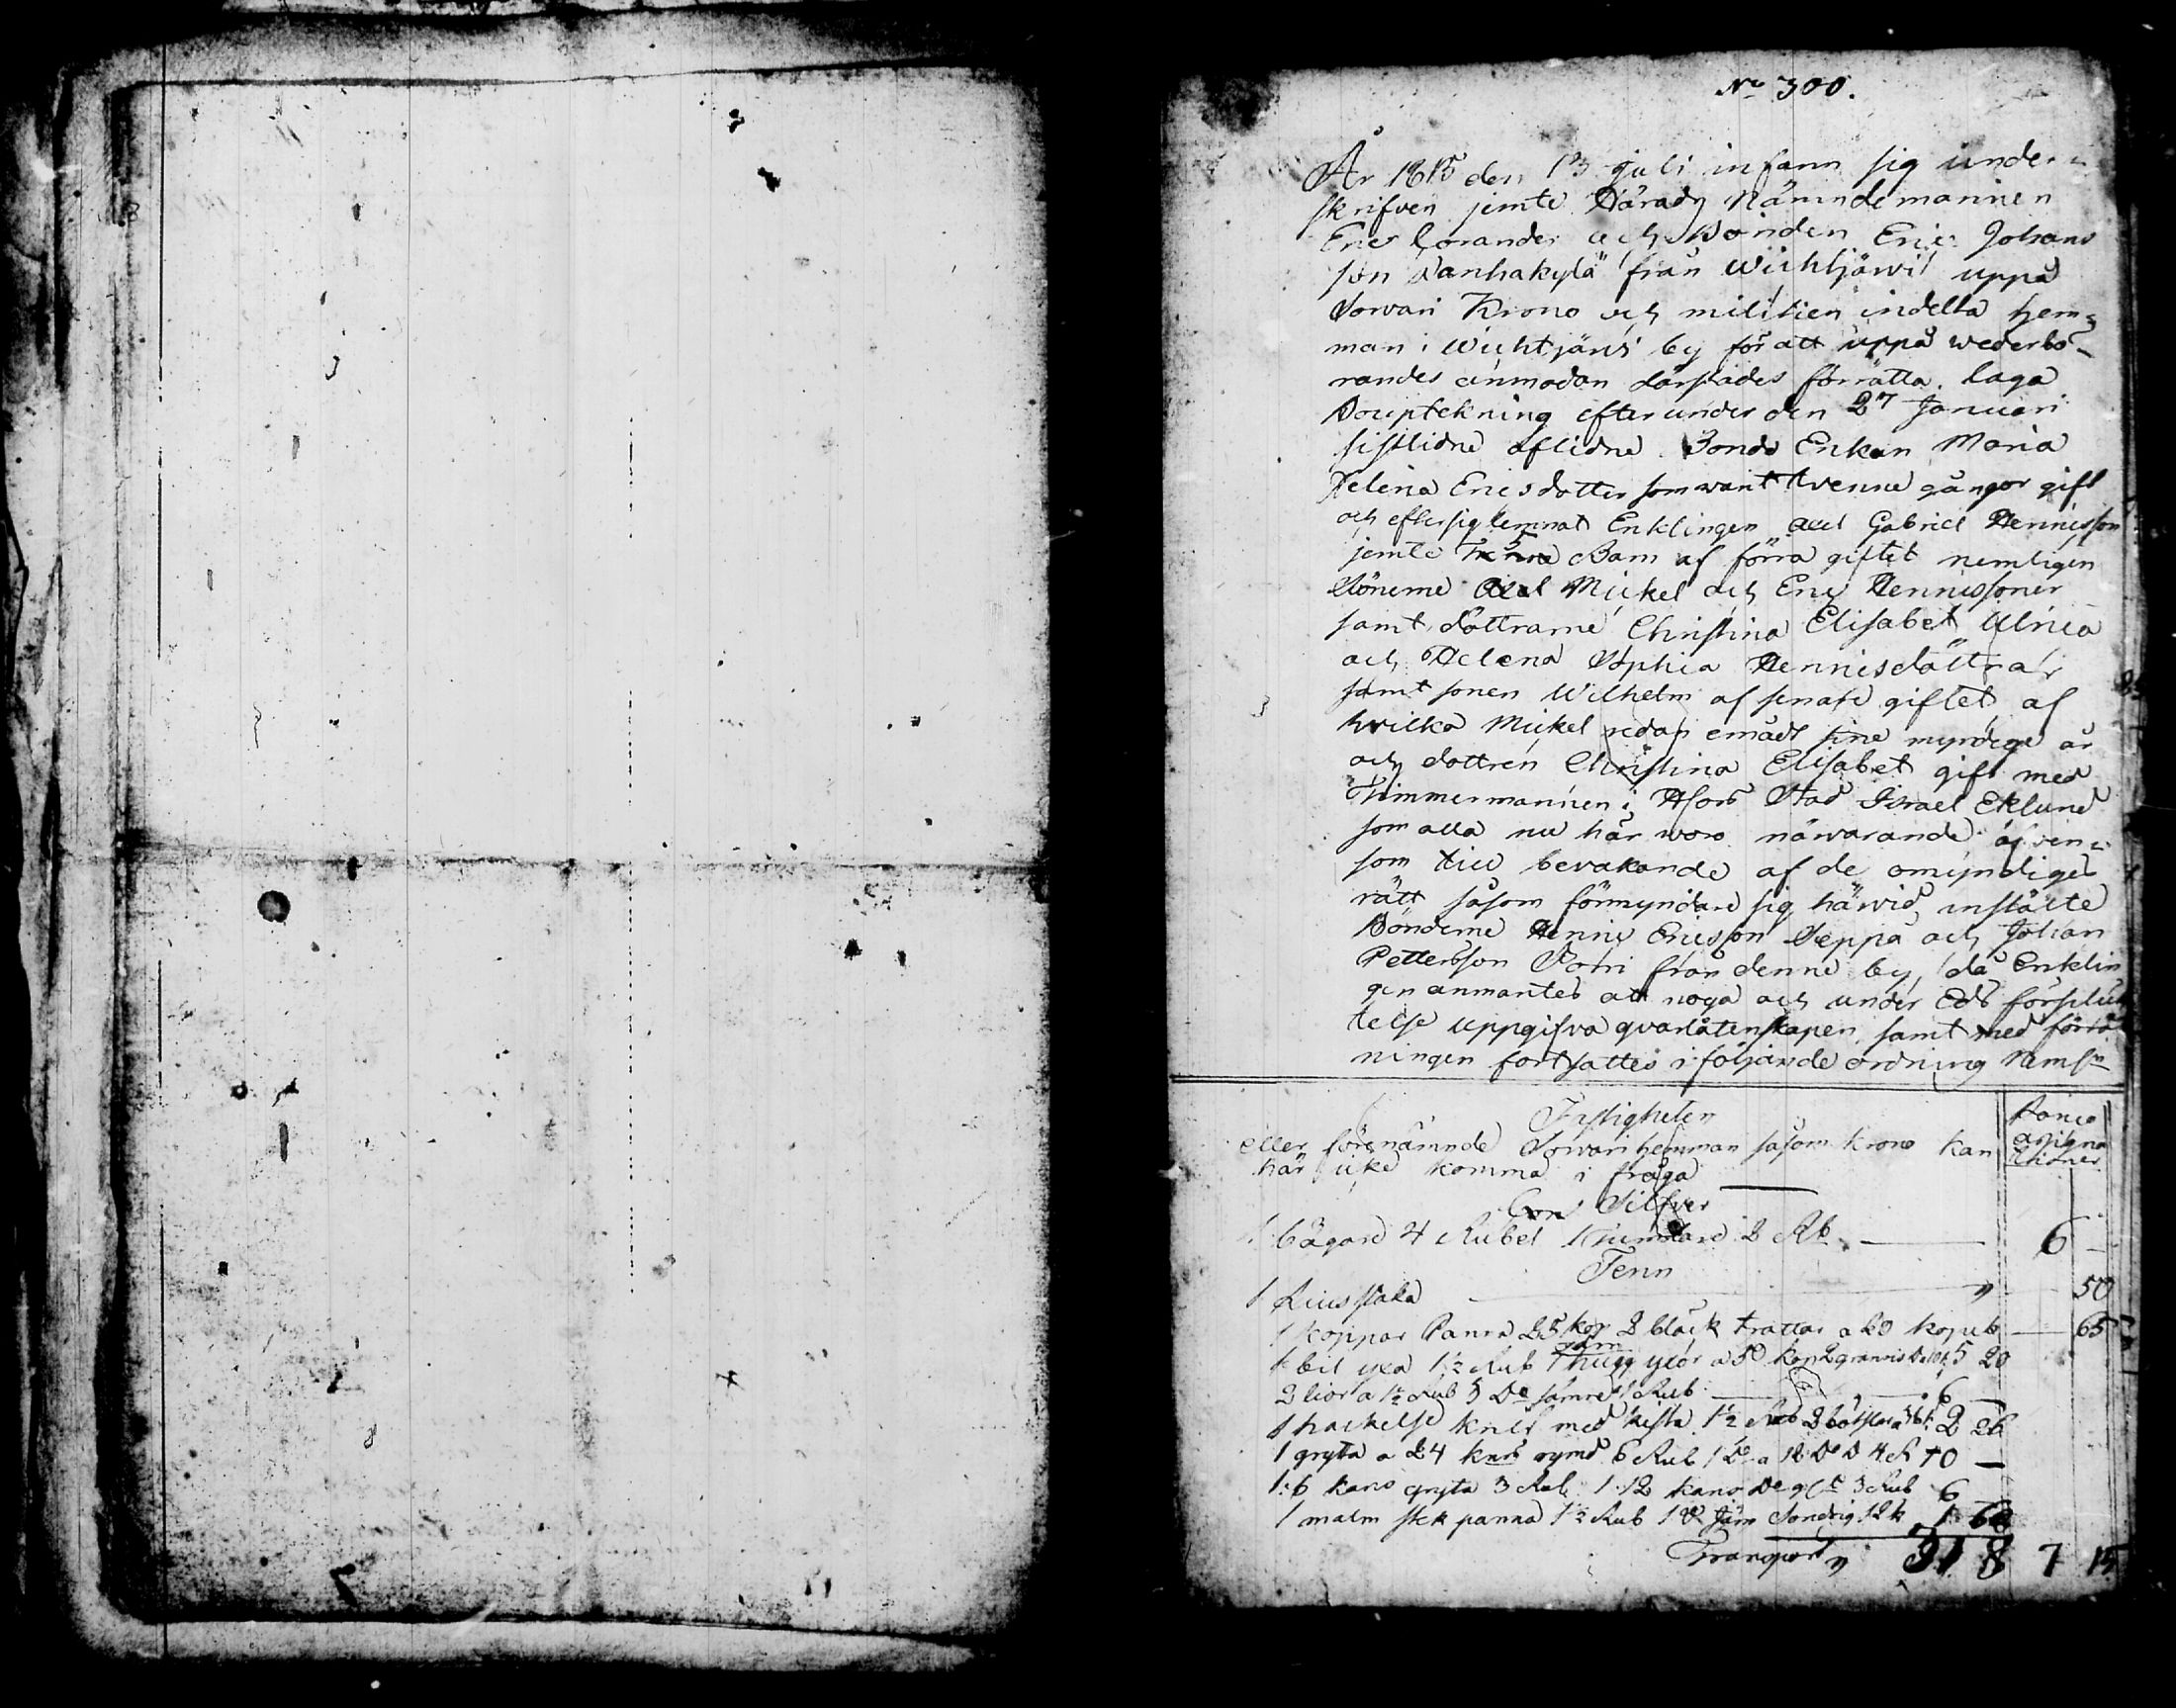 No 300.
År 1815 den 13 Juli infann sig under-
skrifven jemte Härads Nämndemannen
Eric Corander och Bonden Eric Johans
son Wanhakylä från Wichtjärwi uppå
Sorvari Krono och militien indelta hem=
man i Wichtjärvi by för att uppå wederbö-
randes anmodan därstädes förrätta laga
Bouptekning efter under den 27 Januari
sistlidne aflidne Bonde Enkan Maria
Helena Ericsdotter som warit tvenne gångor gift
och efter sig lemnat Enklingen Axel Gabriel Hennisson
jemte 5 Barn af förra giftet nemligen
Sönerne Mickel och Eric Hennissöner
samt döttrarne Christina Elisabet Ulrica
och Helena Sophia Hennisdöttrar
samt sonen Wilhelm af senare giftet, af
hvilka Mickel redan ernådt sine myndige år
och dottren Christina Elisabet gift med
Timmermannen i Hfors Stad Israel Eklund
som alla nu här woro närvarande äfven=
som till bevakande af de omyndiges
rätt såsom förmyndare sig härvid instälte
Bönderne Hennic Ericsson Seppä och Johan
Pettersson från denne by, då Enklin
gen anmantes att noga och under Eds förplik
telse uppgifva qvarlåtenskapen, samt med förrätt
ningen fortsattes i följande ordning Neml:n
Fastigheten
Banco
assigna
tioner
eller förenämnde Sorvari hemman såsom krono kan
här icke komma i fråga
Silfver
1 bägare 4 Rubel 1 2 Rb. — 6 —
Tenn
1 Liusstaka — " — 50
1 koppar Panna 25 kop 2 bläck trattar a 20 kopek — 65
1 bil yxa 1½ Rub 1 hugg yxor a 50 kop 5 20
2 lior a 1½ Rub 3 Do sämre 1 Rub — 6 —
1 hackelse knif med kista 1½ Rub 2
1 gryta a 24 kans rymd 6 Rub 1 Do a 12 Do D 4 R 10 —
1: 6 kans gryta 3 Rub 1 12 kans Do 3 Rub 6 —
1 malm stek panna 1½ Rub 1 Do Järn Sondrig 12 k 1 62
Transport " 31 8 7 15